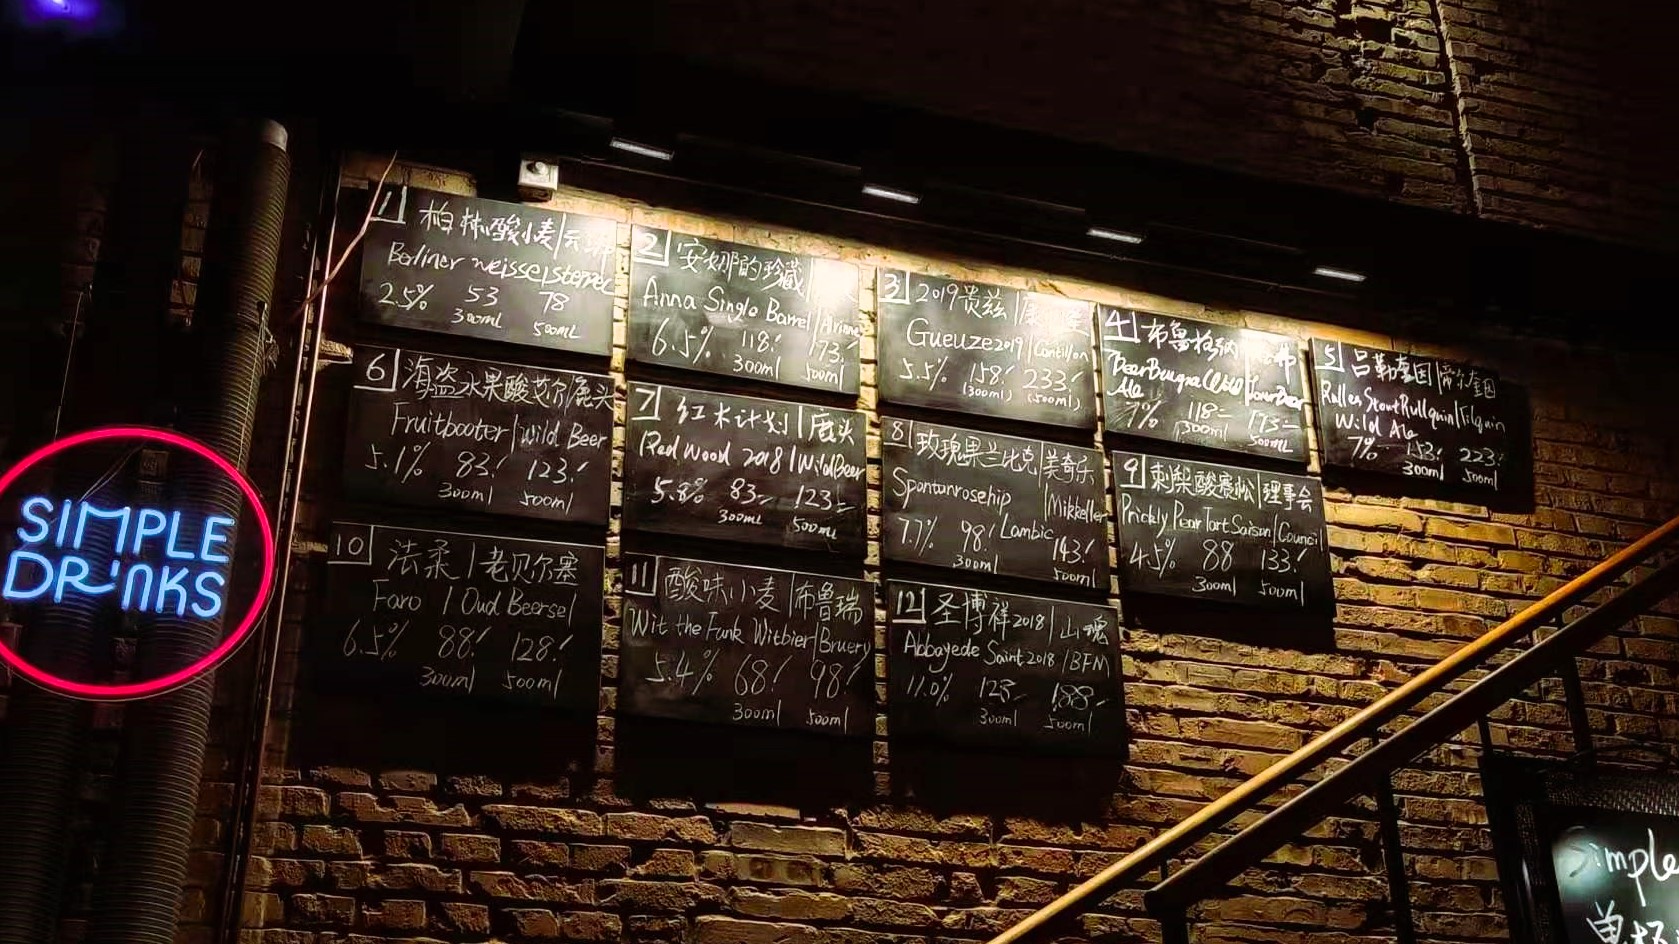 SIMPLE
DRINKS
1 柏林酸小麦
Berliner weisse
2.5% 53 78
300ml 500ml
2 安娜的珍藏
Anna Single Barrel
6.5% 118! 173!
300ml 500ml
3 2019贵兹
Gueuze2019 | Cantillon
5.5% 158! 233!
(300ml) (500ml)
4 布鲁
Ale
7% 118-
300ml 500ml
5 吕勒奎因
Wild Ale
7% 153! 223!
300ml 500ml
6 海盗水果酸艾尔 | 鹿头
Fruitbooter | Wild Beer
5.1% 83! 123!
300ml 500ml
7 红木计划 | 鹿头
Red Wood 2018 | Wild Beer
5.8% 83- 123-
300ml 500ml
8 玫瑰果兰比克 | 美奇乐
Spontanrosehip | Mikkeller
Lambic
7.7% 98! 143!
300ml 500ml
9 刺梨酸赛松 | 理事会
Prickly Pear Tart Saison | Council
4.5% 88 133!
300ml 500ml
10 法柔 | 老贝尔塞
Faro | Oud Beersel
6.5% 88! 128!
300ml 500ml
11 酸味小麦 | 布鲁瑞
Wit the Funk Witbier | Bruery
5.4% 68! 98!
300ml 500ml
12 圣博祥2018 | 山魂
Abbayede Saint 2018 | BFM
11.0% 128- 188-
300ml 500ml
Simple